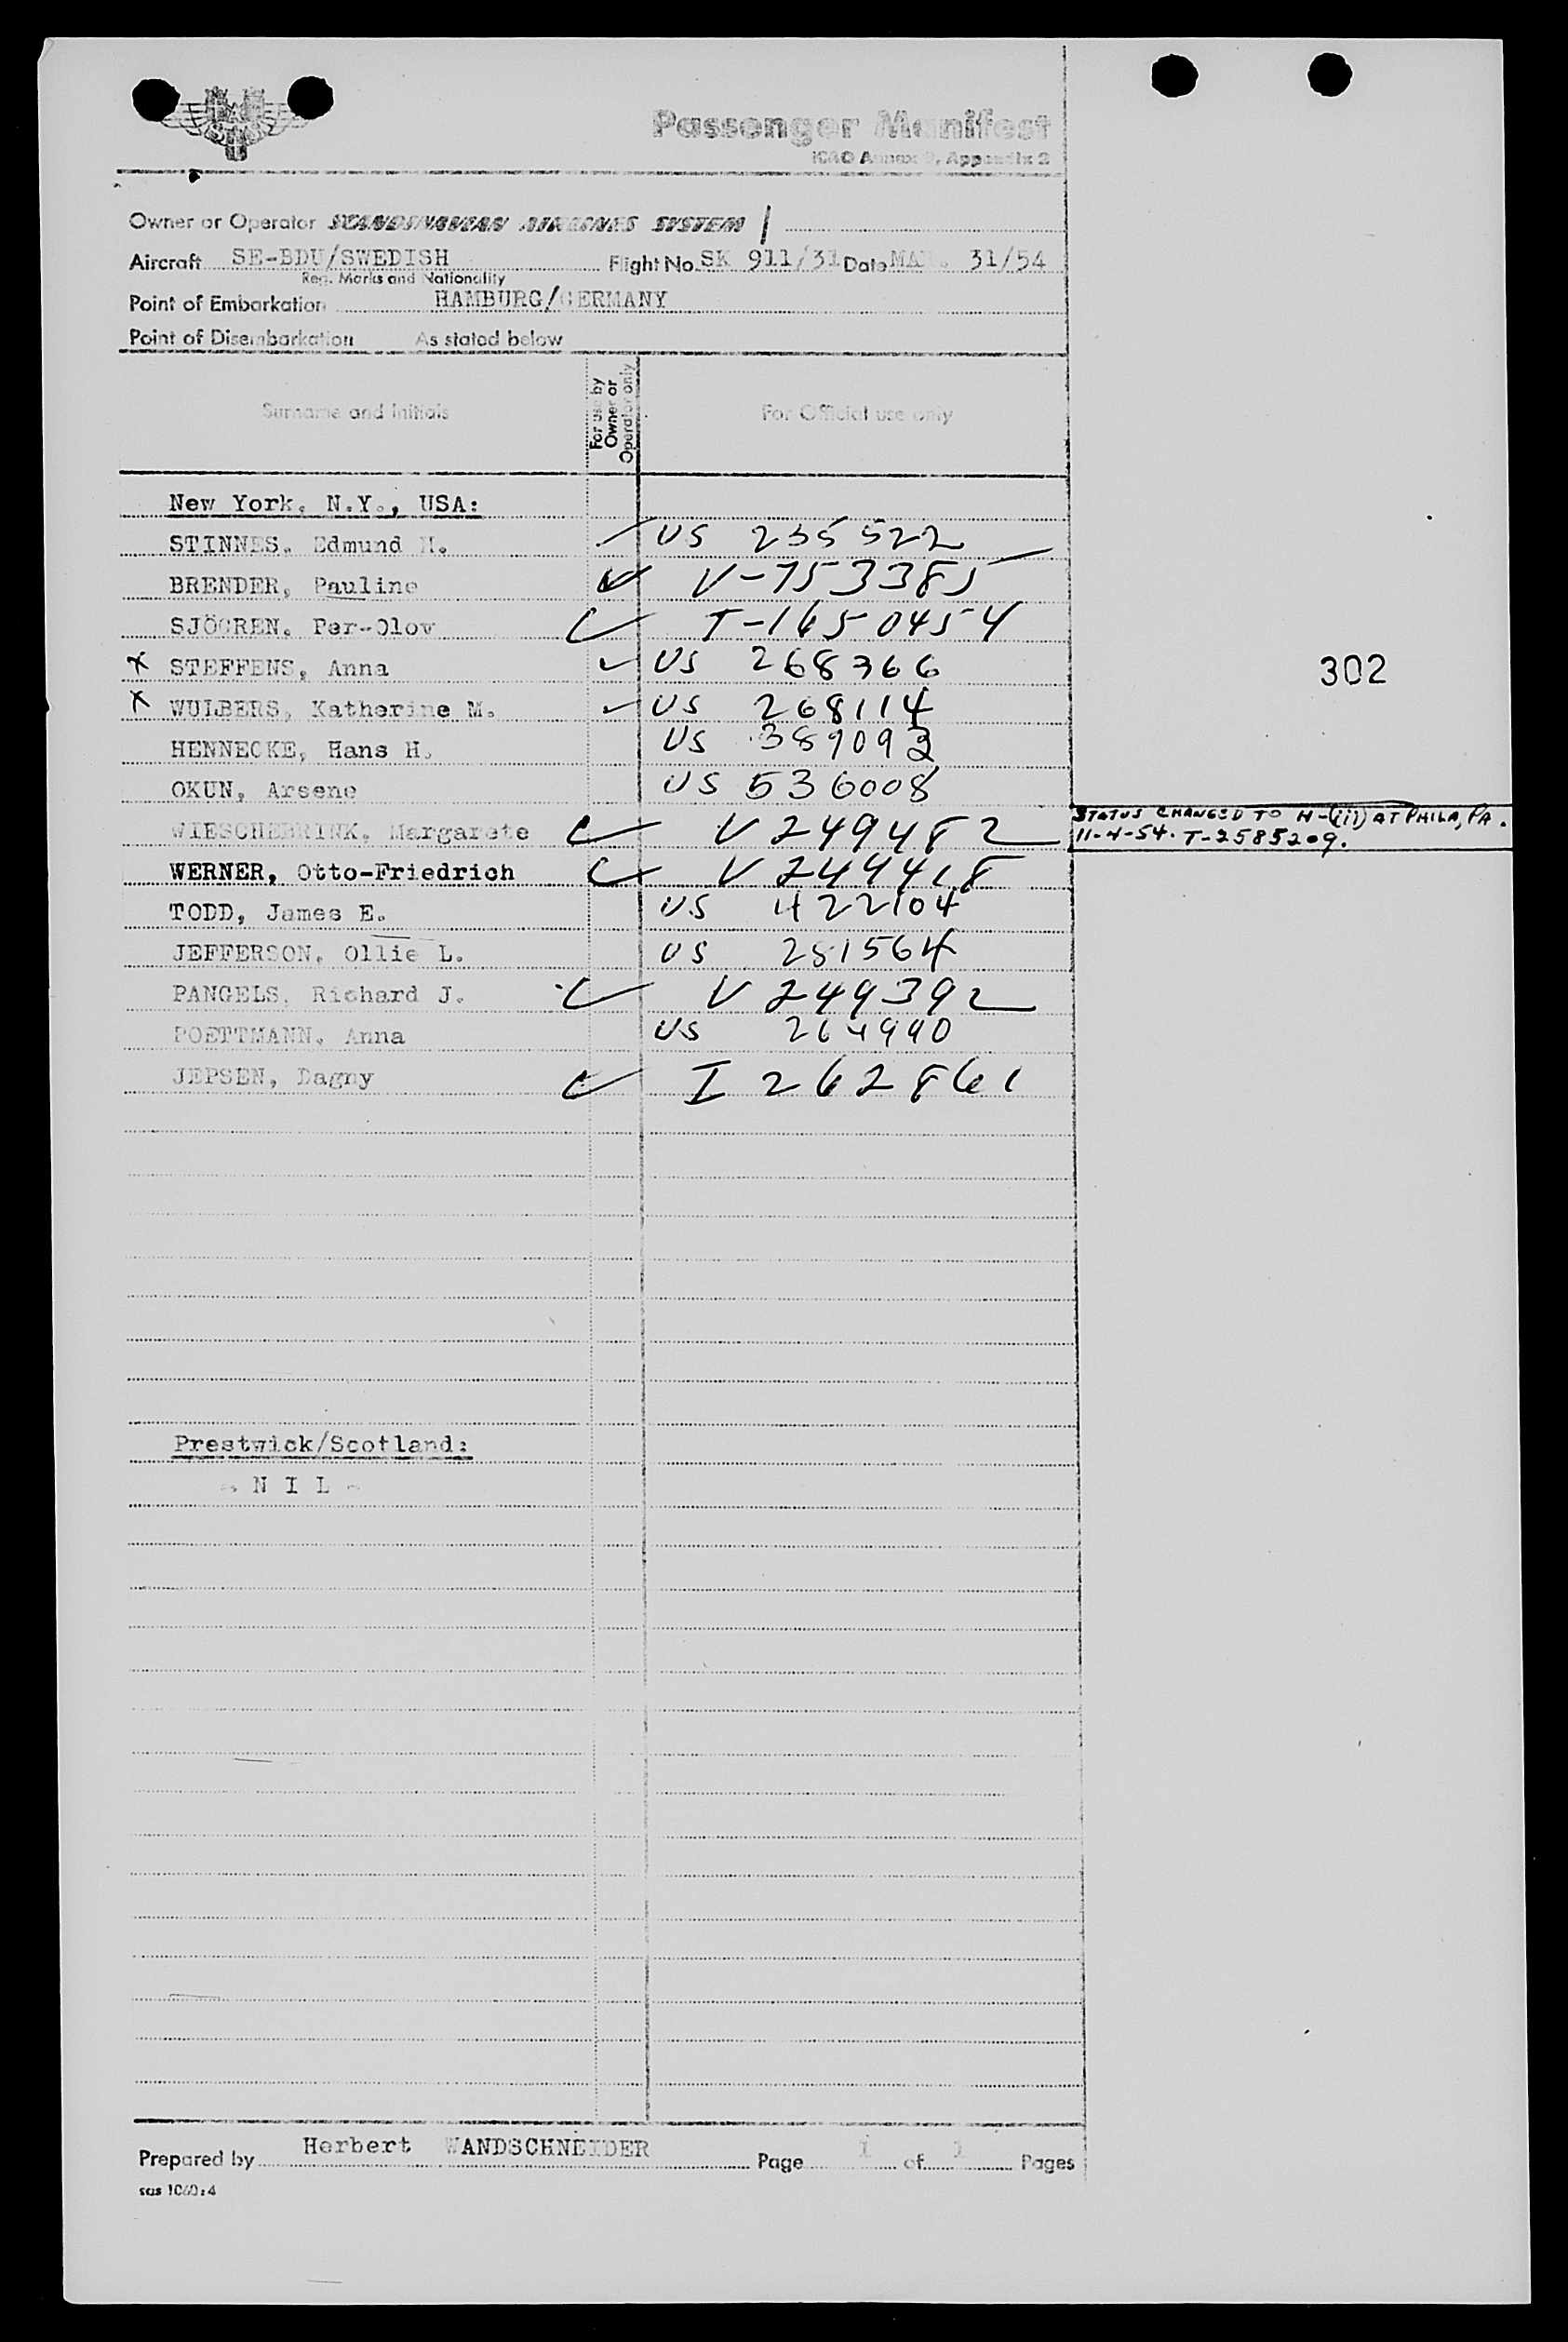 SAS
Passenger Manifest
ICAO Annex 9, Appendix 2
Owner or Operator SCANDINAVIAN AIRLINES SYSTEM
Aircraft SE-BDU/SWEDISH Flight No. SK 911/31 Date MAR. 31/54
Reg. Marks and Nationality
Point of Embarkation HAMBURG/GERMANY
Point of Disembarkation As stated below
Surname and Initials For use by Owner or Operator only For Official use only
New York, N.Y., USA:
STINNES, Edmund H. US 235522
BRENDER, Pauline V-753385
SJÖGREN, Per-Olov T-1650454
x STEFFENS, Anna US 268366
x WULBERS, Katherine M. US 268114
302
HENNECKE, Hans H. US 389093
OKUN, Arsene US 536008
WIESCHEBRINK, Margarete V 249482 STATUS CHANGED TO H-(iii) AT PHILA, PA.
11-4-54. T-2585209.
WERNER, Otto-Friedrich V 244418
TODD, James E. US 422104
JEFFERSON, Ollie L. US 281564
PANGELS, Richard J. V 249392
POETTMANN, Anna US 264990
JEPSEN, Dagny I 262861
Prestwick/Scotland:
- N I L -
Prepared by Herbert WANDSCHNEIDER Page 1 of 1 Pages
sas 1060:4